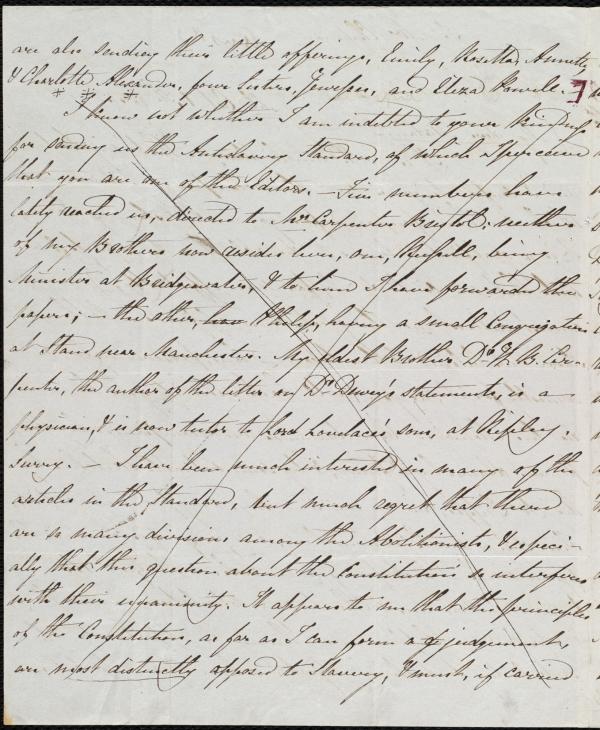 are also sending their little offerings, Emily, Rosetta, Annette,
& Charlotte Alexander, four Sisters, Jewesses, and Eliza Powell. ]
# # #
I know not whether I am indebted to your kindness
for sending us the Antislavery Standard, of which I perceive
that you are one of the Editors. – Five numbers have
lately reached us, directed to Mr Carpenter Bristol; neither
of my Brothers now resides here, one, Russell, being
Minister at Bridgewater, & to him I have forwarded the
papers; – the other, has Philip, having a small Congregation
at Stand near Manchester. My eldest Brother Dr W. B. Car-
penter, the author of the letter on Dr Dewey's statements, is a
physician, & is now tutor to Lord Lovelace's sons, at Ripley,
Surrey. – I have been much interested in many of the
articles in the Standard, but much regret that there
are so many divisions among the Abolitionists, & especi-
ally that this question about the Constitution so interferes
with their unanimity. It appears to me that the principles
of the Constitution, as far as I can form a judgement,
are most distinctly opposed to Slavery, & must, if carried